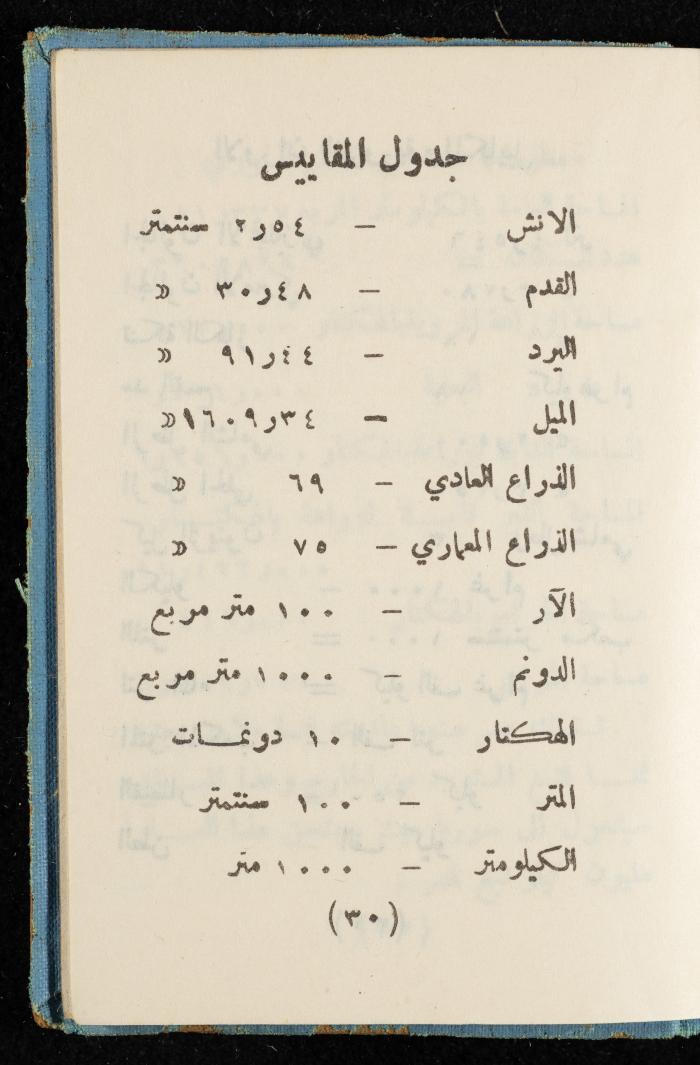 جدول المقاييس
الانش – ٥٤ر٢ سنتمتر
القدم – ٤٨ر٣٠ »
اليرد – ٤٤ر٩١ »
الميل – ٣٤ر١٦٠٩ »
الذراع العادي – ٦٩ »
الذراع المعماري – ٧٥ »
الآر – ١٠٠ متر مربع
الدونم – ١٠٠٠ متر مربع
الهكتار – ١٠ دونمات
المتر – ١٠٠ سنتمتر
الكيلومتر – ١٠٠٠ متر
(٣٠)